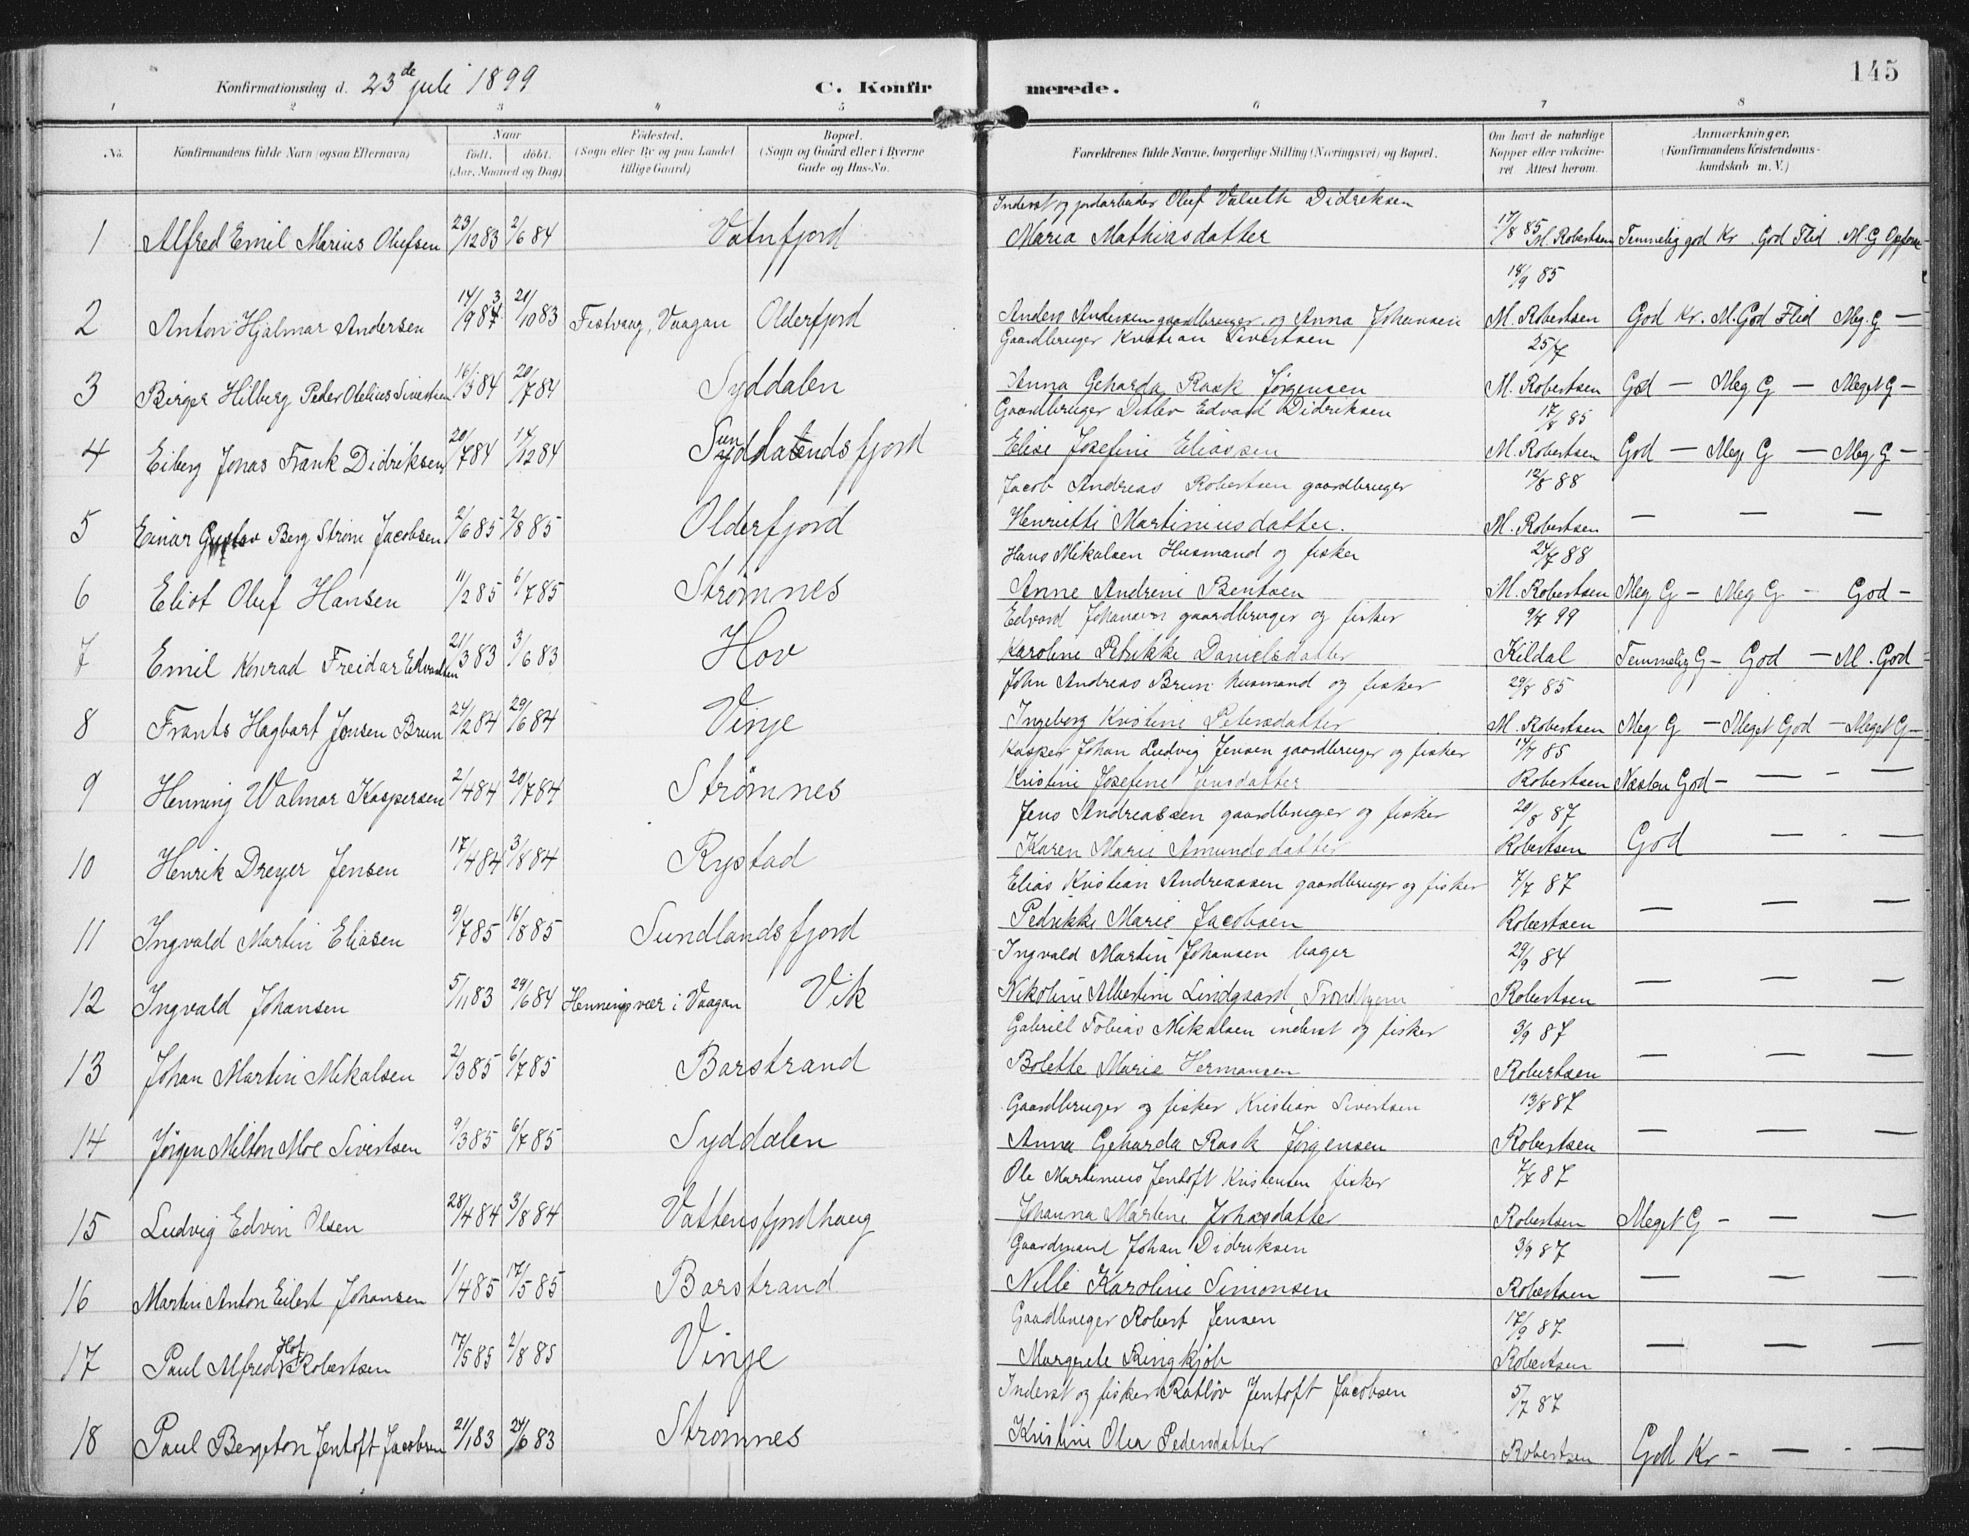 145
Konfirmationsdag d. 23de juli 1899 C. Konfirmerede.
1 2 3 4 5 6 7 8
No. Konfirmandens fulde Navn (ogsaa Efternavn) Naar født. døbt. (Aar, Maaned og Dag) Fødested. (Sogn eller By og paa Landet tillige Gaard) Bopæl. (Sogn og Gaard eller i Byerne Gade og Hus-No. Forældrenes fulde Navne, borgerlige Stilling (Næringsvei) og Bopæl. Om havt de naturlige Kopper eller vakcineret Attest herom. Anmærkninger. (Konfirmandens Kristendomskundskab m. V.)
Inderst og jordarbeider Oluf Valseth Didriksen
1 Alfred Emil Marius Olufsen 23/12 83 2/6 84 Vatnfjord Maria Mathiasdatter 17/8 85 M. Robertsen Temmelig god Kr. God Flid M. G Opførs
18/9 85
2 Anton Hjalmar Andersen 14/9 83 21/10 83 Festvaag, Vaagan Olderfjord Anders Andersen gaardbruger og Anna Johansen M. Robertsen God Kr. M. God Flid Meg. G —
Gaardbruger Kristian Sivertsen 25/7
3 Birger Hilberg Peder Otelius Sivertsen 16/3 84 20/7 84 Syddalen Anna Geharda Rask Jørgensen M. Robertsen God — Meg G — Meget G —
Gaardbruger Ditlev Edvard Didriksen 17/8 85
4 Eiberg Jonas Frank Didriksen 20/7 84 14/12 84 Sundlandsfjord Elise Josefine Eliassen M. Robertsen God — Meg G — Meg G —
Jacob Andreas Robertsen gaardbruger 12/8 88
5 Einar Gustav Berg Strøm Jacobsen 2/6 85 2/8 85 Olderfjord Henriette Martiniusdatter. M. Robertsen — — —
Hans Mikalsen Husmand og fisker 24/7 88
6 Eliot Oluf Hansen 11/2 85 6/7 85 Strømnes Anne Andrine Bentsen M. Robertsen Meg G — Meg G — God —
Edvard Johansen gaardbruger og fisker 9/7 99
7 Emil Konrad Freidar Edvardsen 21/3 83 3/6 83 Hov Karoline Petrikke Danielsdatter Kildal Temmelig G — God — M. God
John Andreas Brun husmand og fisker 29/8 85
8 Frants Hagbart Jonsen Brun 24/2 84 29/6 84 Vinje Ingeborg Kristine Petersdatter M. Robertsen Meg G — Meget God — Meget G —
Kasper Johan Ludvig Jensen gaardbruger og fisker 14/7 85
9 Henning Walmar Kaspersen 2/4 84 20/7 84 Strømnes Kristine Josefine Jensdatter Robertsen Næsten God — — —
Jens Andreassen gaardbruger og fisker 20/8 87
10 Henrik Dreyer Jensen 17/4 84 3/8 84 Rystad Karen Marie Amundsdatter Robertsen God — —
Elias Kristian Andreassen gaardbruger og fisker 7/7 87
11 Ingvald Martin Eliasen 9/7 85 16/8 85 Sundlandsfjord Pedrikke Marie Jacobsen Robertsen — — —
Ingvald Martin Johansen bager 29/9 84
12 Ingvald Johansen 5/11 83 29/6 84 Henningsvær i Vaagan Vik Nikoline Albertine Lindgaard, Trondhjem Robertsen — — —
Gabriel Tobias Mikalsen inderst og fisker 3/9 87
13 Johan Martin Mikalsen 2/3 85 6/7 85 Barstrand Bolette Marie Hermansen Robertsen — — —
Gaardbruger og fisker Kristian Sivertsen 13/8 87
14 Jørgen Milton Moe Sivertsen 9/3 85 6/7 85 Syddalen Anna Geharda Rask Jørgensen Robertsen — — —
Ole Martinius Jentoft Kristensen fisker 7/7 87
15 Ludvig Edvin Olsen 28/4 84 3/8 84 Vattensfjordhaug Johanna Martine Johasdatter Robertsen Meget G — — —
Gaardmand Johan Didriksen 3/9 87
16 Martin Anton Eilert Johansen 1/4 85 17/5 85 Barstrand Nille Karoline Simonsen Robertsen — — —
Gaardbruger Robert Jensen 17/9 87
17 Paul Alfred Hof Robertsen 17/5 85 2/8 85 Vinje Margrete Ringkjøb Robertsen — — —
Inderst og fisker Ratløv Jentoft Jacobsen 5/7 87
18 Paul Bergeton Jentoft Jacobsen 21/1 83 24/6 83 Strømnes Kristine Olea Pedersdatter Robertsen God Kr — — —